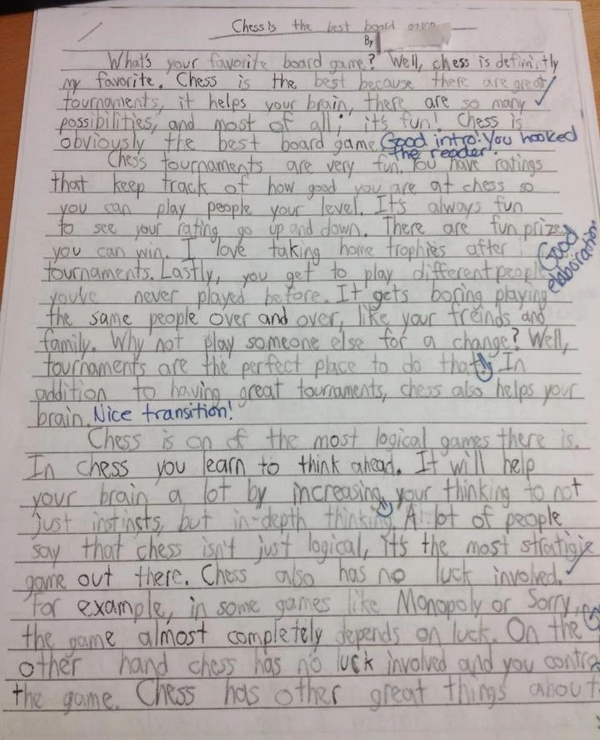 Chess is the best board game
By
What's your favorite board game? Well, chess is definitly
my favorite. Chess is the best because there are great
tournaments, it helps your brain, there are so many
possibilities, and most of all, it's fun! Chess is
obviously the best board game. Good intro! You hooked
the reader!
Chess tournaments are very fun. You have ratings
that keep track of how good you are at chess so
you can play people your level. It's always fun
to see your rating go up and down. There are fun prize
you can win. I love taking home trophies after
tournaments. Lastly, you get to play different people
Good
elaboration
you've never played before. It gets boring playing
the same people over and over, like your freinds and
family. Why not play someone else for a change? Well,
tournaments are the perfect place to do that. In
addition to having great tournaments, chess also helps your
brain. Nice transition!
Chess is on of the most logical games there is.
In chess you learn to think ahead. It will help
your brain a lot by increasing your thinking to not
just instinsts, but in-depth thinking. A lot of people
say that chess isn't just logical, it's the most stratigie
game out there. Chess also has no luck involved.
For example, in some games like Monopoly or Sorry,
the game almost completely depends on luck. On the
other hand chess has no luck involved and you contro
the game. Chess has other great things about